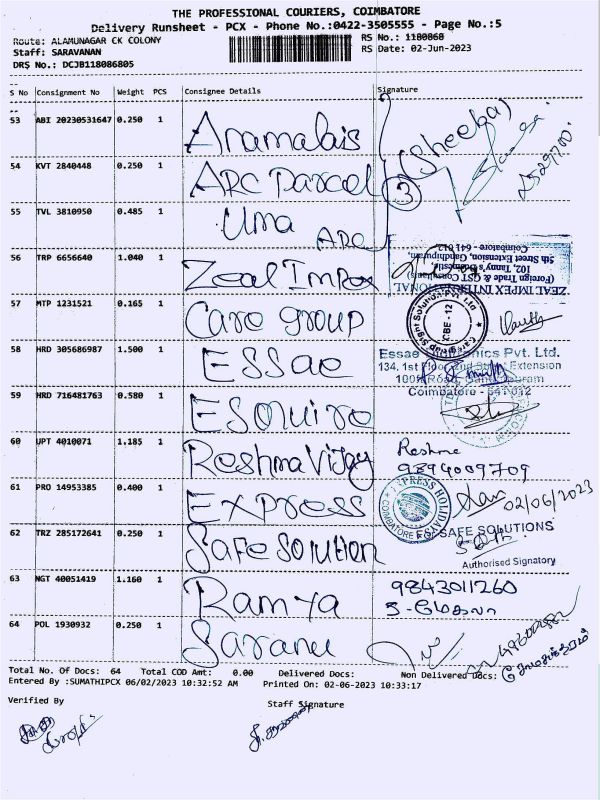 THE PROFESSIONAL COURIERS, COIMBATORE
Delivery Runsheet - PCX - Phone No.:0422-3505555 - Page No.:5
Route: ALAMUNAGAR CK COLONY
RS No.: 1180860
Staff: SARAVANAN
RS Date: 02-Jun-2023
DRS No.: DCJB118086805
S No Consignment No Weight PCS Consignee Details Signature
53 ABI 20230531647 0.250 1 Anamalais
(Sheeba)
54 KVT 2840448 0.250 1 ARC Parcel
3
55 TVL 3810950 0.485 1 Uma ARC
56 TRP 6656640 1.040 1 Zeal Impex
ZEAL IMPEX INTERNATIONAL
(Foreign Trade & GST Consultants)
102, Tanny's Domestic
5th Street Extension, Gandhipuram,
Coimbatore - 641 012
57 MTP 1231521 0.165 1 Care group
CBE - 12
58 HRD 305686987 1.500 1 Essae
Essae Pvt. Ltd.
134, 1st Floor, 2nd Street Extension
100ft Road, Gandhipuram
Coimbatore - 641 012
59 HRD 716481763 0.580 1 Esquire
60 UPT 4010071 1.185 1 Reshma Vijay
Reshma
9894009709
61 PRO 14953385 0.400 1 Express
EXPRESS HOLIDAYS
COIMBATORE
02/06/2023
62 TRZ 285172641 0.250 1 Safe Solution
For SAFE SOLUTIONS
Authorised Signatory
63 NGT 40051419 1.160 1 Ramya
9843011260
64 POL 1930932 0.250 1 Saranu
Total No. Of Docs: 64 Total COD Amt: 0.00 Delivered Docs: Non Delivered Docs:
Entered By :SUMATHIPCX 06/02/2023 10:32:52 AM Printed On: 02-06-2023 10:33:17
Verified By Staff Signature